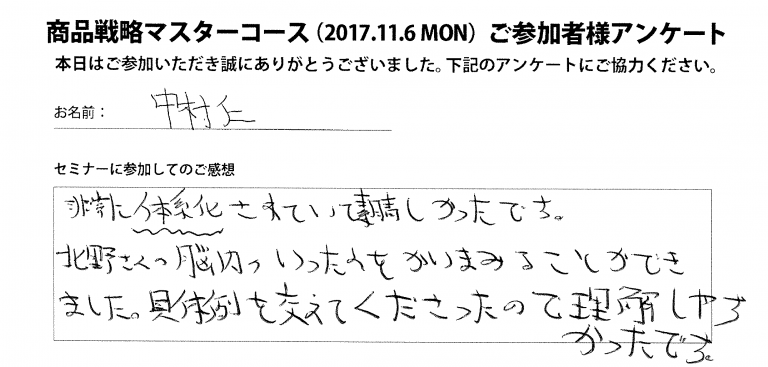 商品戦略マスターコース（2017.11.6 MON）ご参加者様アンケート
本日はご参加いただき誠にありがとうございました。下記のアンケートにご協力ください。
お名前： 中村仁
セミナーに参加してのご感想
非常に体系化されていて素晴しかったです。
北野さんの脳内の いったんをかいまみることができ
ました。具体例を交えてくださったので理解しやす
かったです。